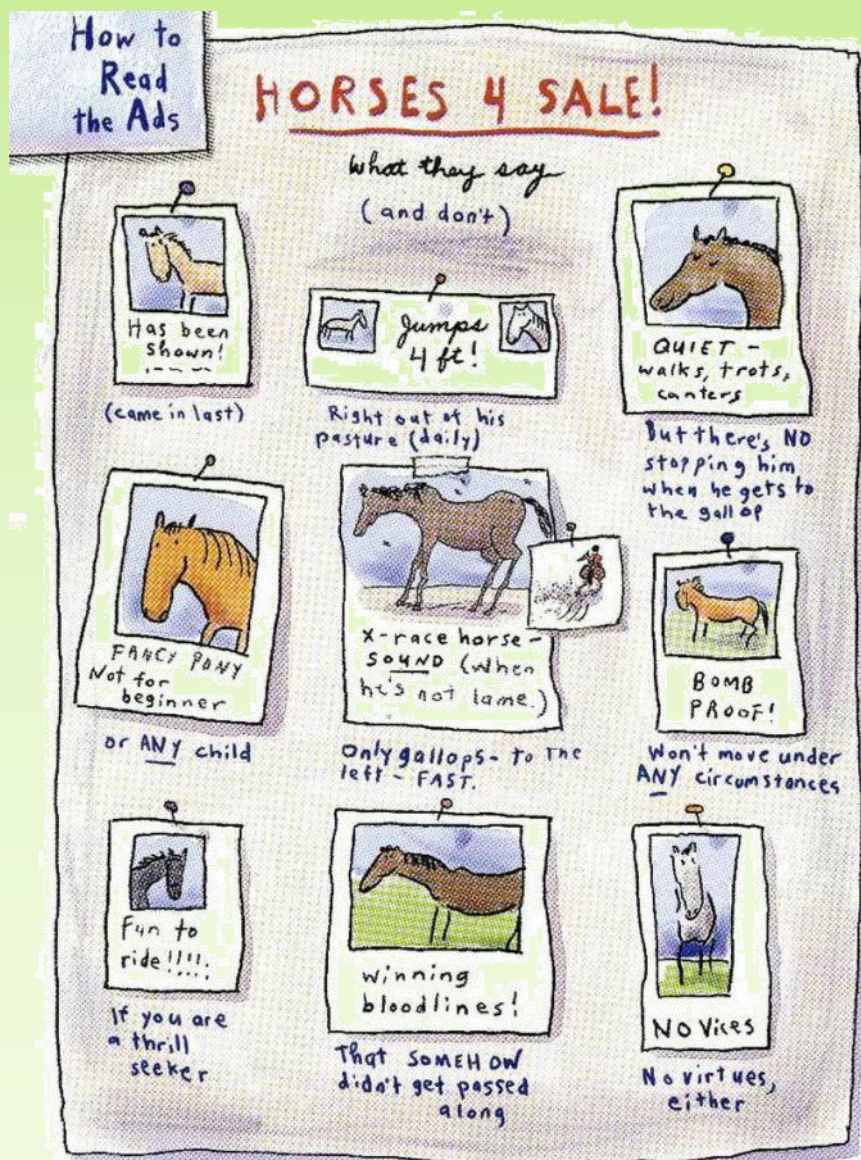 How to
Read
the Ads
HORSES 4 SALE!
What they say
(and don't)
Has been
shown!
(came in last)
Jumps
4 ft!
Right out of his
pasture (daily)
QUIET -
walks, trots,
canters
But there's NO
stopping him
when he gets to
the gallop
FANCY PONY
Not for
beginner
or ANY child
X-race horse-
SOUND (when
he's not lame.)
Only gallops- to the
left - FAST.
BOMB
PROOF!
Won't move under
ANY circumstances
Fun to
ride!!!!!
If you are
a thrill
seeker
winning
bloodlines!
That SOMEHOW
didn't get passed
along
NO Vices
No virtues,
either